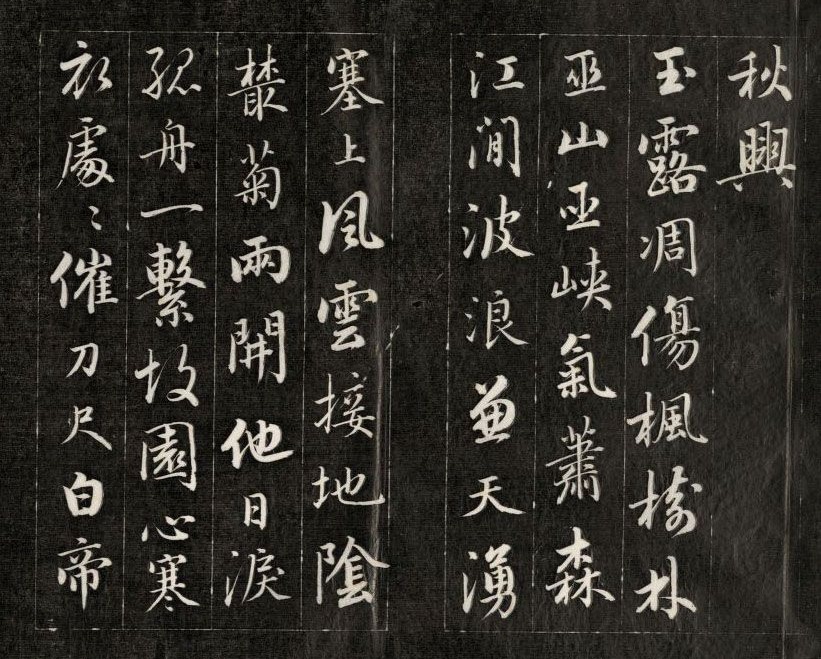 秋興
玉露凋傷楓樹林
巫山巫峽氣蕭森
江澗波浪兼天湧
塞上風雲接地陰
叢菊兩開他日淚
孤舟一繫故園心寒
衣處〻催刀尺白帝